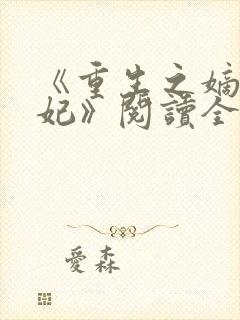 《重生之嫡
妃》閱讀全
愛森